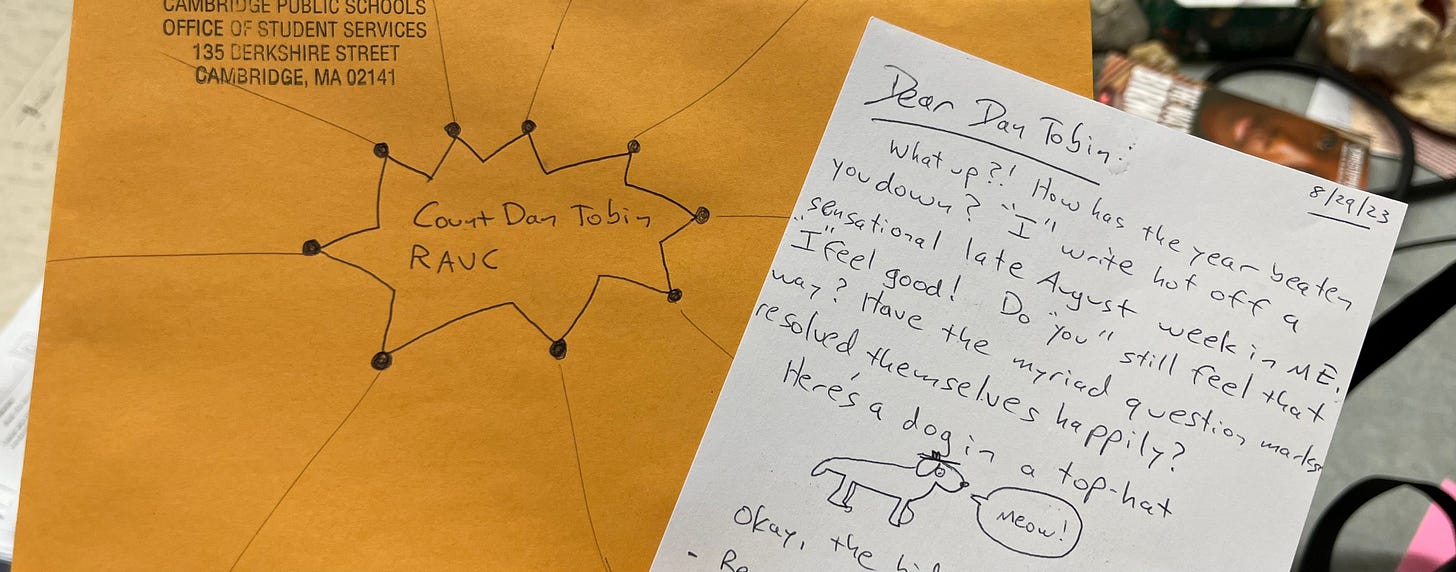 CAMBRIDGE PUBLIC SCHOOLS
OFFICE OF STUDENT SERVICES
135 BERKSHIRE STREET
CAMBRIDGE, MA 02141
Count Dan Tobin
RAUC
Dear Dan Tobin:
8/29/23
What up?! How has the year beaten
you down? "I" write hot off a
sensational late August week in ME.
"I" feel good! Do "you" still feel that
way? Have the myriad question marks
resolved themselves happily?
Here's a dog in a top-hat
Meow!
Okay, the